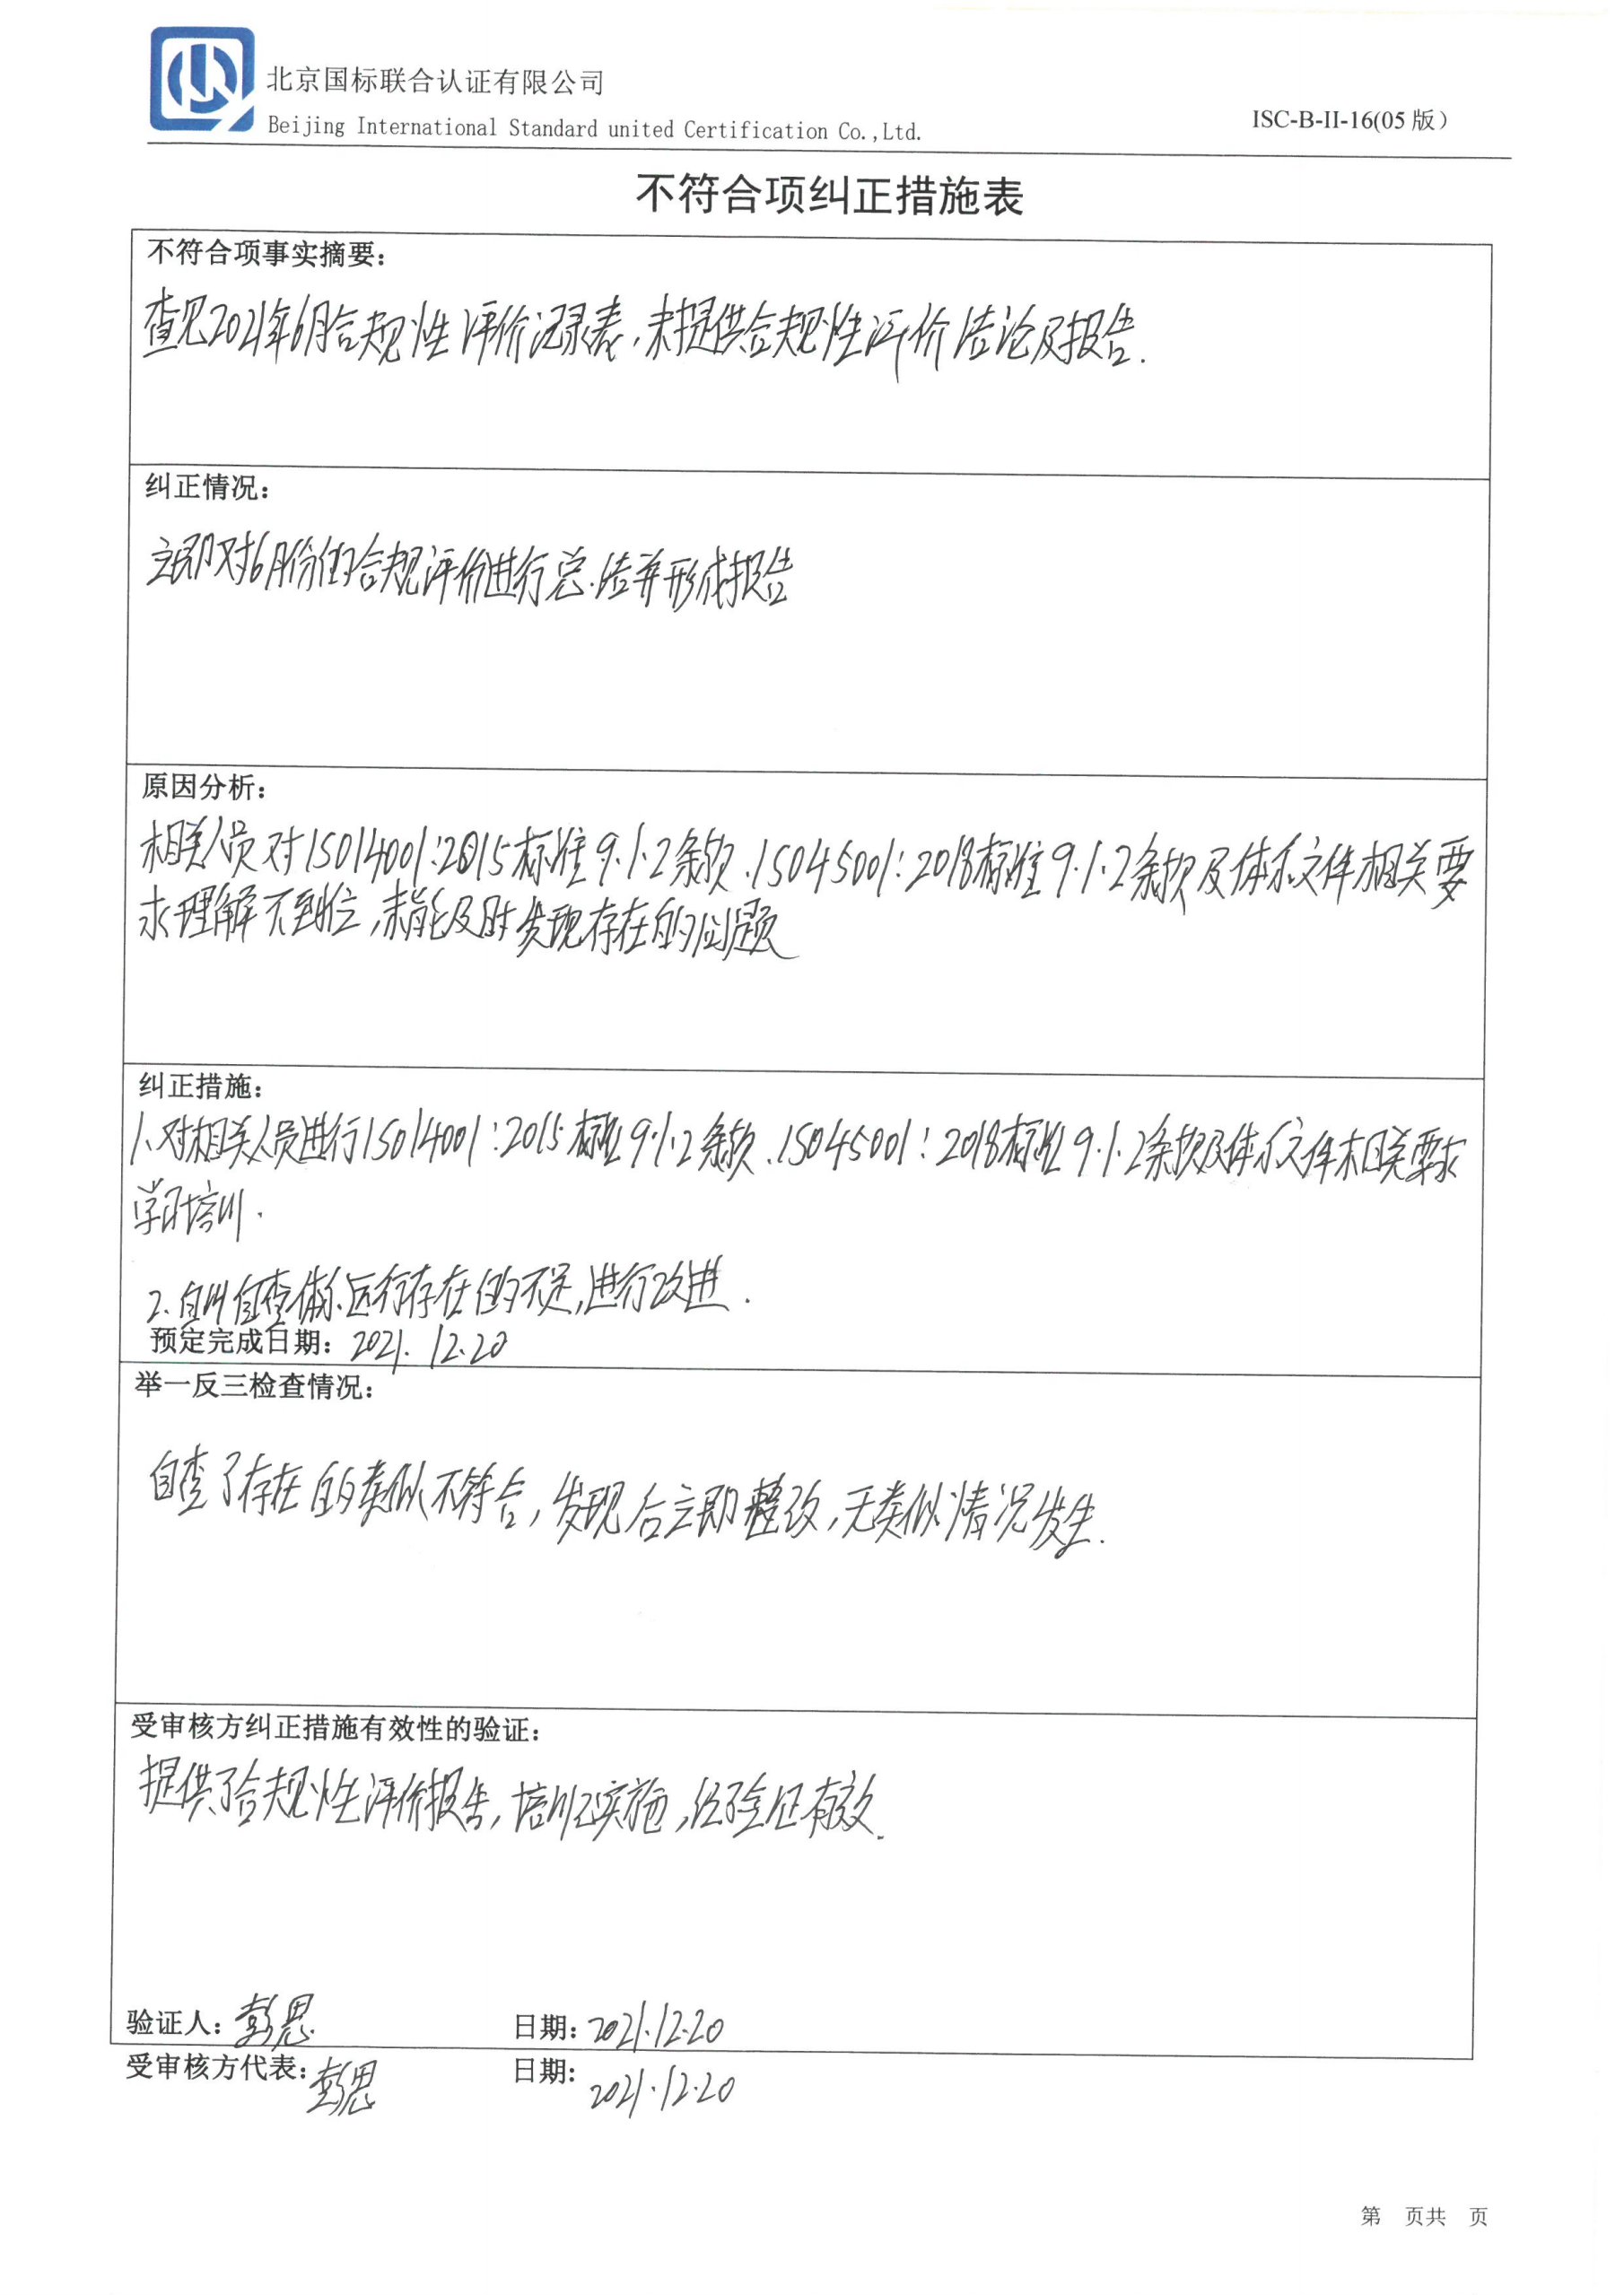 北京国标联合认证有限公司
Beijing International Standard united Certification Co.,Ltd.
ISC-B-II-16(05 版)
不符合项纠正措施表
不符合项事实摘要：
查见2021年6月合规性评价记录表，未提供合规性评价结论及报告.
纠正情况：
立即对6月份的合规评价进行总结并形成报告
原因分析：
相关人员对ISO14001:2015标准9.1.2条款、ISO45001:2018标准9.1.2条款及体系文件相关要
求理解不到位，未能及时发现存在的问题
纠正措施：
1、对相关人员进行ISO14001:2015标准9.1.2条款、ISO45001:2018标准9.1.2条款及体系文件相关要求
学习培训.
2.自纠自查体系运行存在的不足，进行改进.
预定完成日期：2021.12.20
举一反三检查情况：
自查了存在的类似不符合，发现后立即整改，无类似情况发生.
受审核方纠正措施有效性的验证：
提供了合规性评价报告，培训已实施，经验证有效.
验证人：彭思 日期：2021.12.20
受审核方代表：彭思 日期：2021.12.20
第 页共 页